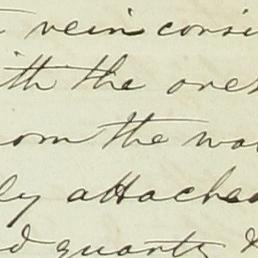 vein consi
ith the ores
rom the wa
ly attached
d quartz &